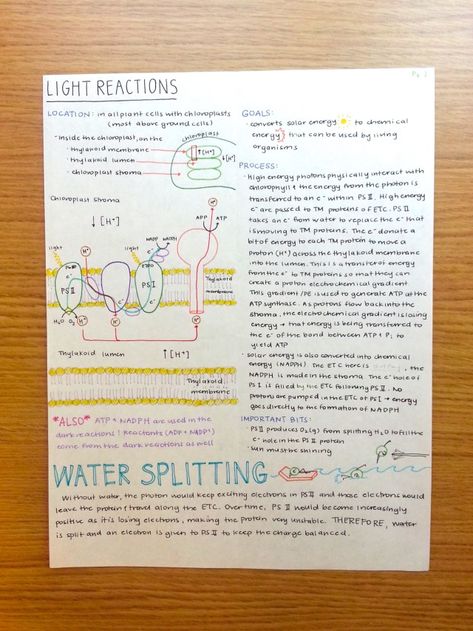 Pg. 1
LIGHT REACTIONS
LOCATION: in all plant cells with chloroplasts
(most above ground cells)
- Inside the chloroplast, on the
· thylakoid membrane
· thylakoid lumen
· chloroplast stroma
chloroplast
↑[H+]
↓[H+]
Chloroplast stroma
↓[H+]
ADP
ATP
H+
light
NADP
NADPH
light
PS II
PS I
e-
Thylakoid membrane
H2O
O2
H+
H+
H+
Thylakoid lumen
↑[H+]
Thylakoid membrane
*ALSO* ATP + NADPH are used in the
dark reactions! Reactants (ADP + NADP+)
come from the dark reactions as well
GOALS:
· converts solar energy to chemical
energy that can be used by living
organisms
PROCESS:
· High energy photons physically interact with
chlorophyll + the energy from the photon is
transferred to an e- within PS II. High energy
e- are passed to TM proteins of ETC. PS II
takes an e- from water to replace the e- that
is moving to TM proteins. The e- donate a
bit of energy to each TM protein to move a
proton (H+) across the thylakoid membrane
into the lumen. This is a transfer of energy
from the e- to TM proteins so that they can
create a proton electrochemical gradient.
This gradient/PE is used to generate ATP at the
ATP synthase. As protons flow back into the
stroma, the electrochemical gradient is losing
energy → that energy is being transferred to
the e- of the bond between ADP + Pi to
yield ATP
· solar energy is also converted into chemical
energy (NADPH). The ETC here is the
NADPH is made in the stroma. The e- hole of
PS I is filled by the ETC following PS II. No
protons are pumped in the ETC of PS I → energy
goes directly to the formation of NADPH
IMPORTANT BITS:
· PS II produces O2(g) from splitting H2O to fill the
e- hole in the PS II protein
· sun must be shining
WATER SPLITTING
Without water, the photon would keep exciting electrons in PS II and those electrons would
leave the protein + travel along the ETC. Overtime, PS II would become increasingly
positive as it's losing electrons, making the protein very unstable. THEREFORE, water
is split and an electron is given to PS II to keep the charge balanced.